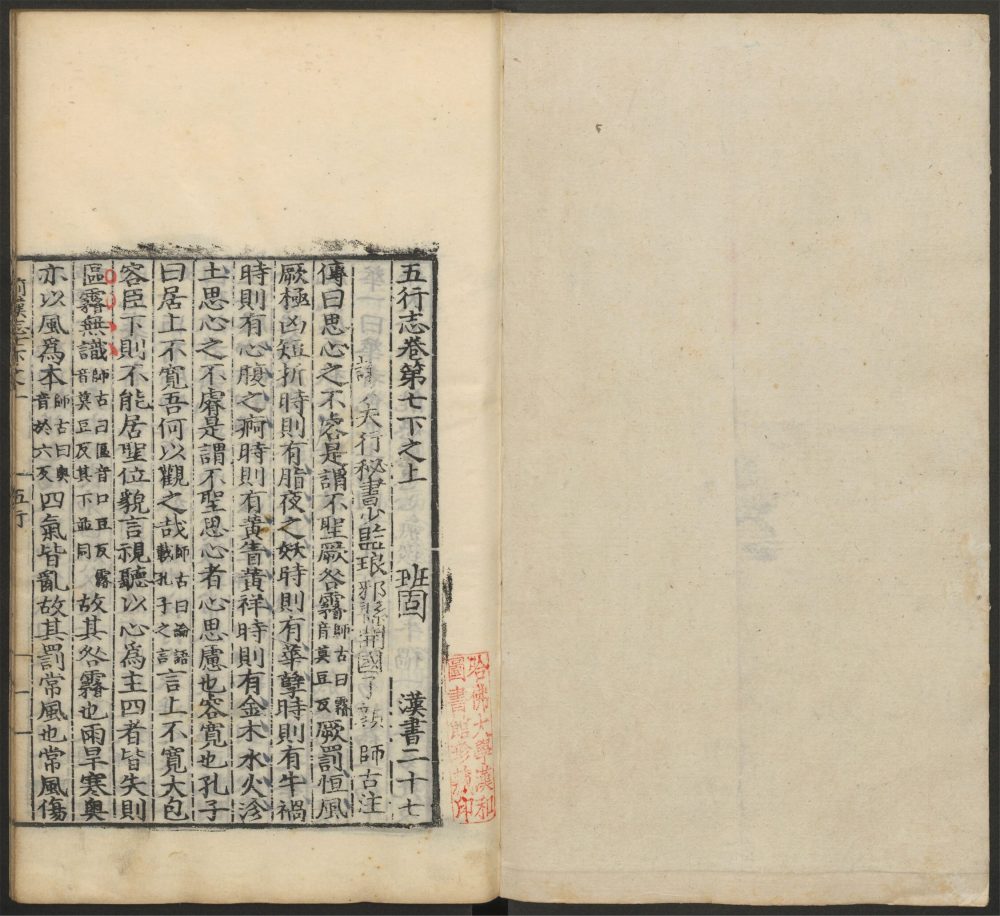 五行志卷第七下之上 班固 漢書二十七
議 大行秘書少監琅邪縣開國子顏師古注
傳曰思心之不容是謂不聖厥咎霿師古曰霿音莫豆反厥罰恒風
厥極凶短折時則有脂夜之妖時則有華孽時則有牛禍
時則有心腹之痾時則有黃眚黃祥時則有金木水火沴
土思心之不睿是謂不聖思心者心思慮也容寬也孔子
曰居上不寬吾何以觀之哉師古曰論語載孔子之言言上不寬大包
容臣下則不能居聖位貌言視聽以心為主四者皆失則
區霿無識師古曰區音口豆反霿音莫豆反其下並同故其咎霿也雨旱寒奧
亦以風為本師古曰奧音於六反四氣皆亂故其罰常風也常風傷
五行
哈佛大學漢和圖書館珍藏印